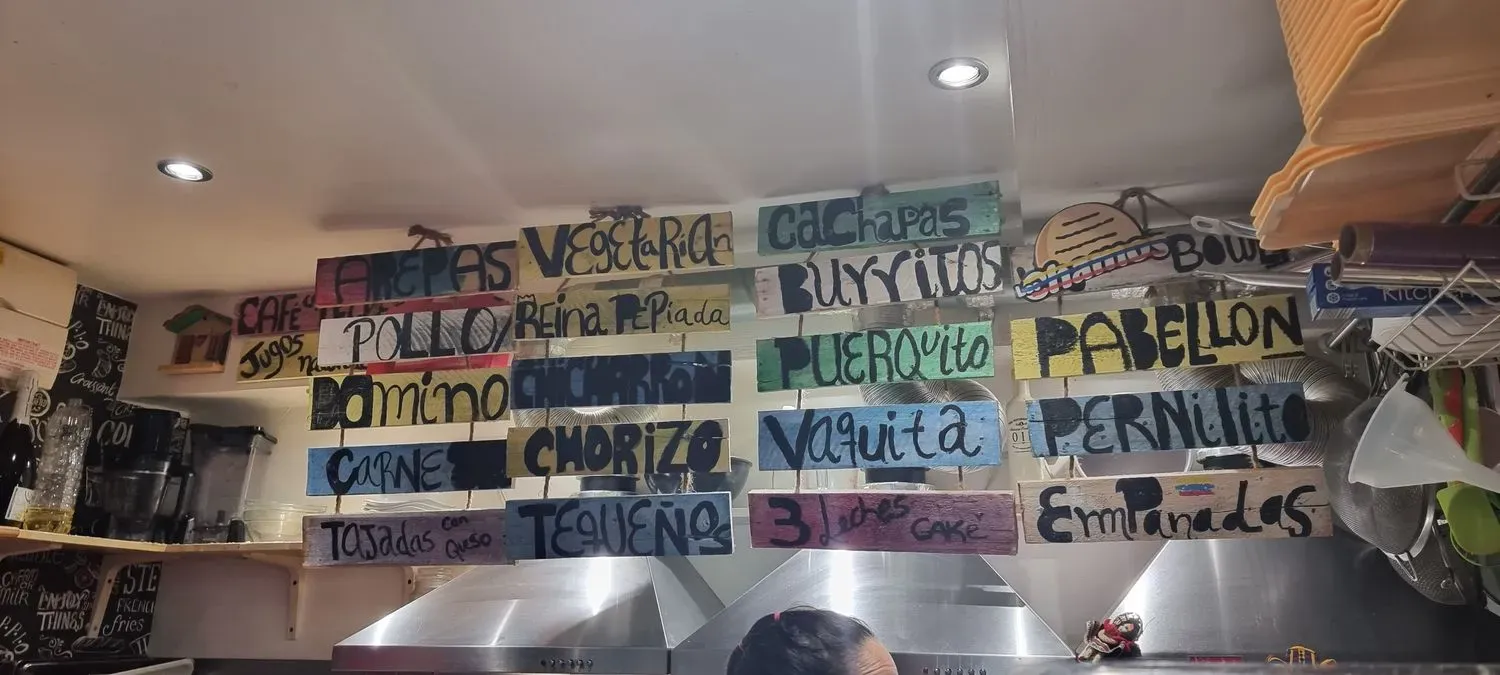 CAFÉ
JUGOS
AREPAS
POLLO
DOMINO
CARNE
TAJADAS con Queso
VEGETARIAN
REINA PEPiada
CHICHARRON
CHORIZO
TEQUEÑOS
CACHAPAS
BURRITOS
PUERQUITO
VAQUITA
3 Leches CAKE
BOWL
PABELLON
PERNILITO
EMPANADAS
Kitchen
THINGS
Croissants
ENJOY
THINGS
FRENCH
fries